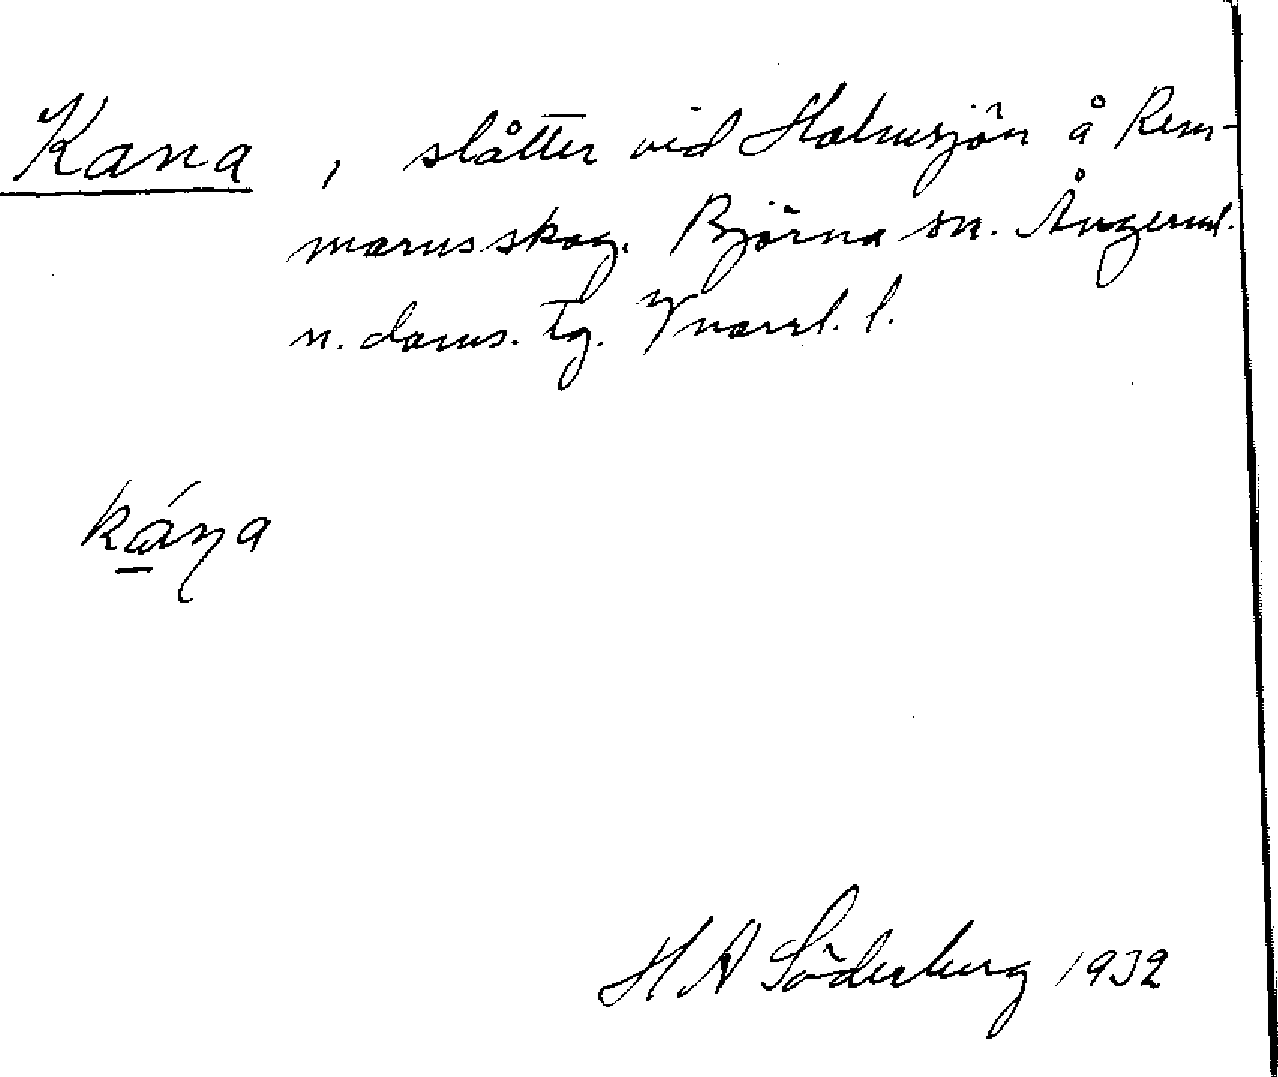 Kana, slåtter vid Holmsjön å Rem-
marns skog. Björna sn. Ångerml.
n. doms. tg. Ynorrl. l.
kána
H A Söderberg 1932